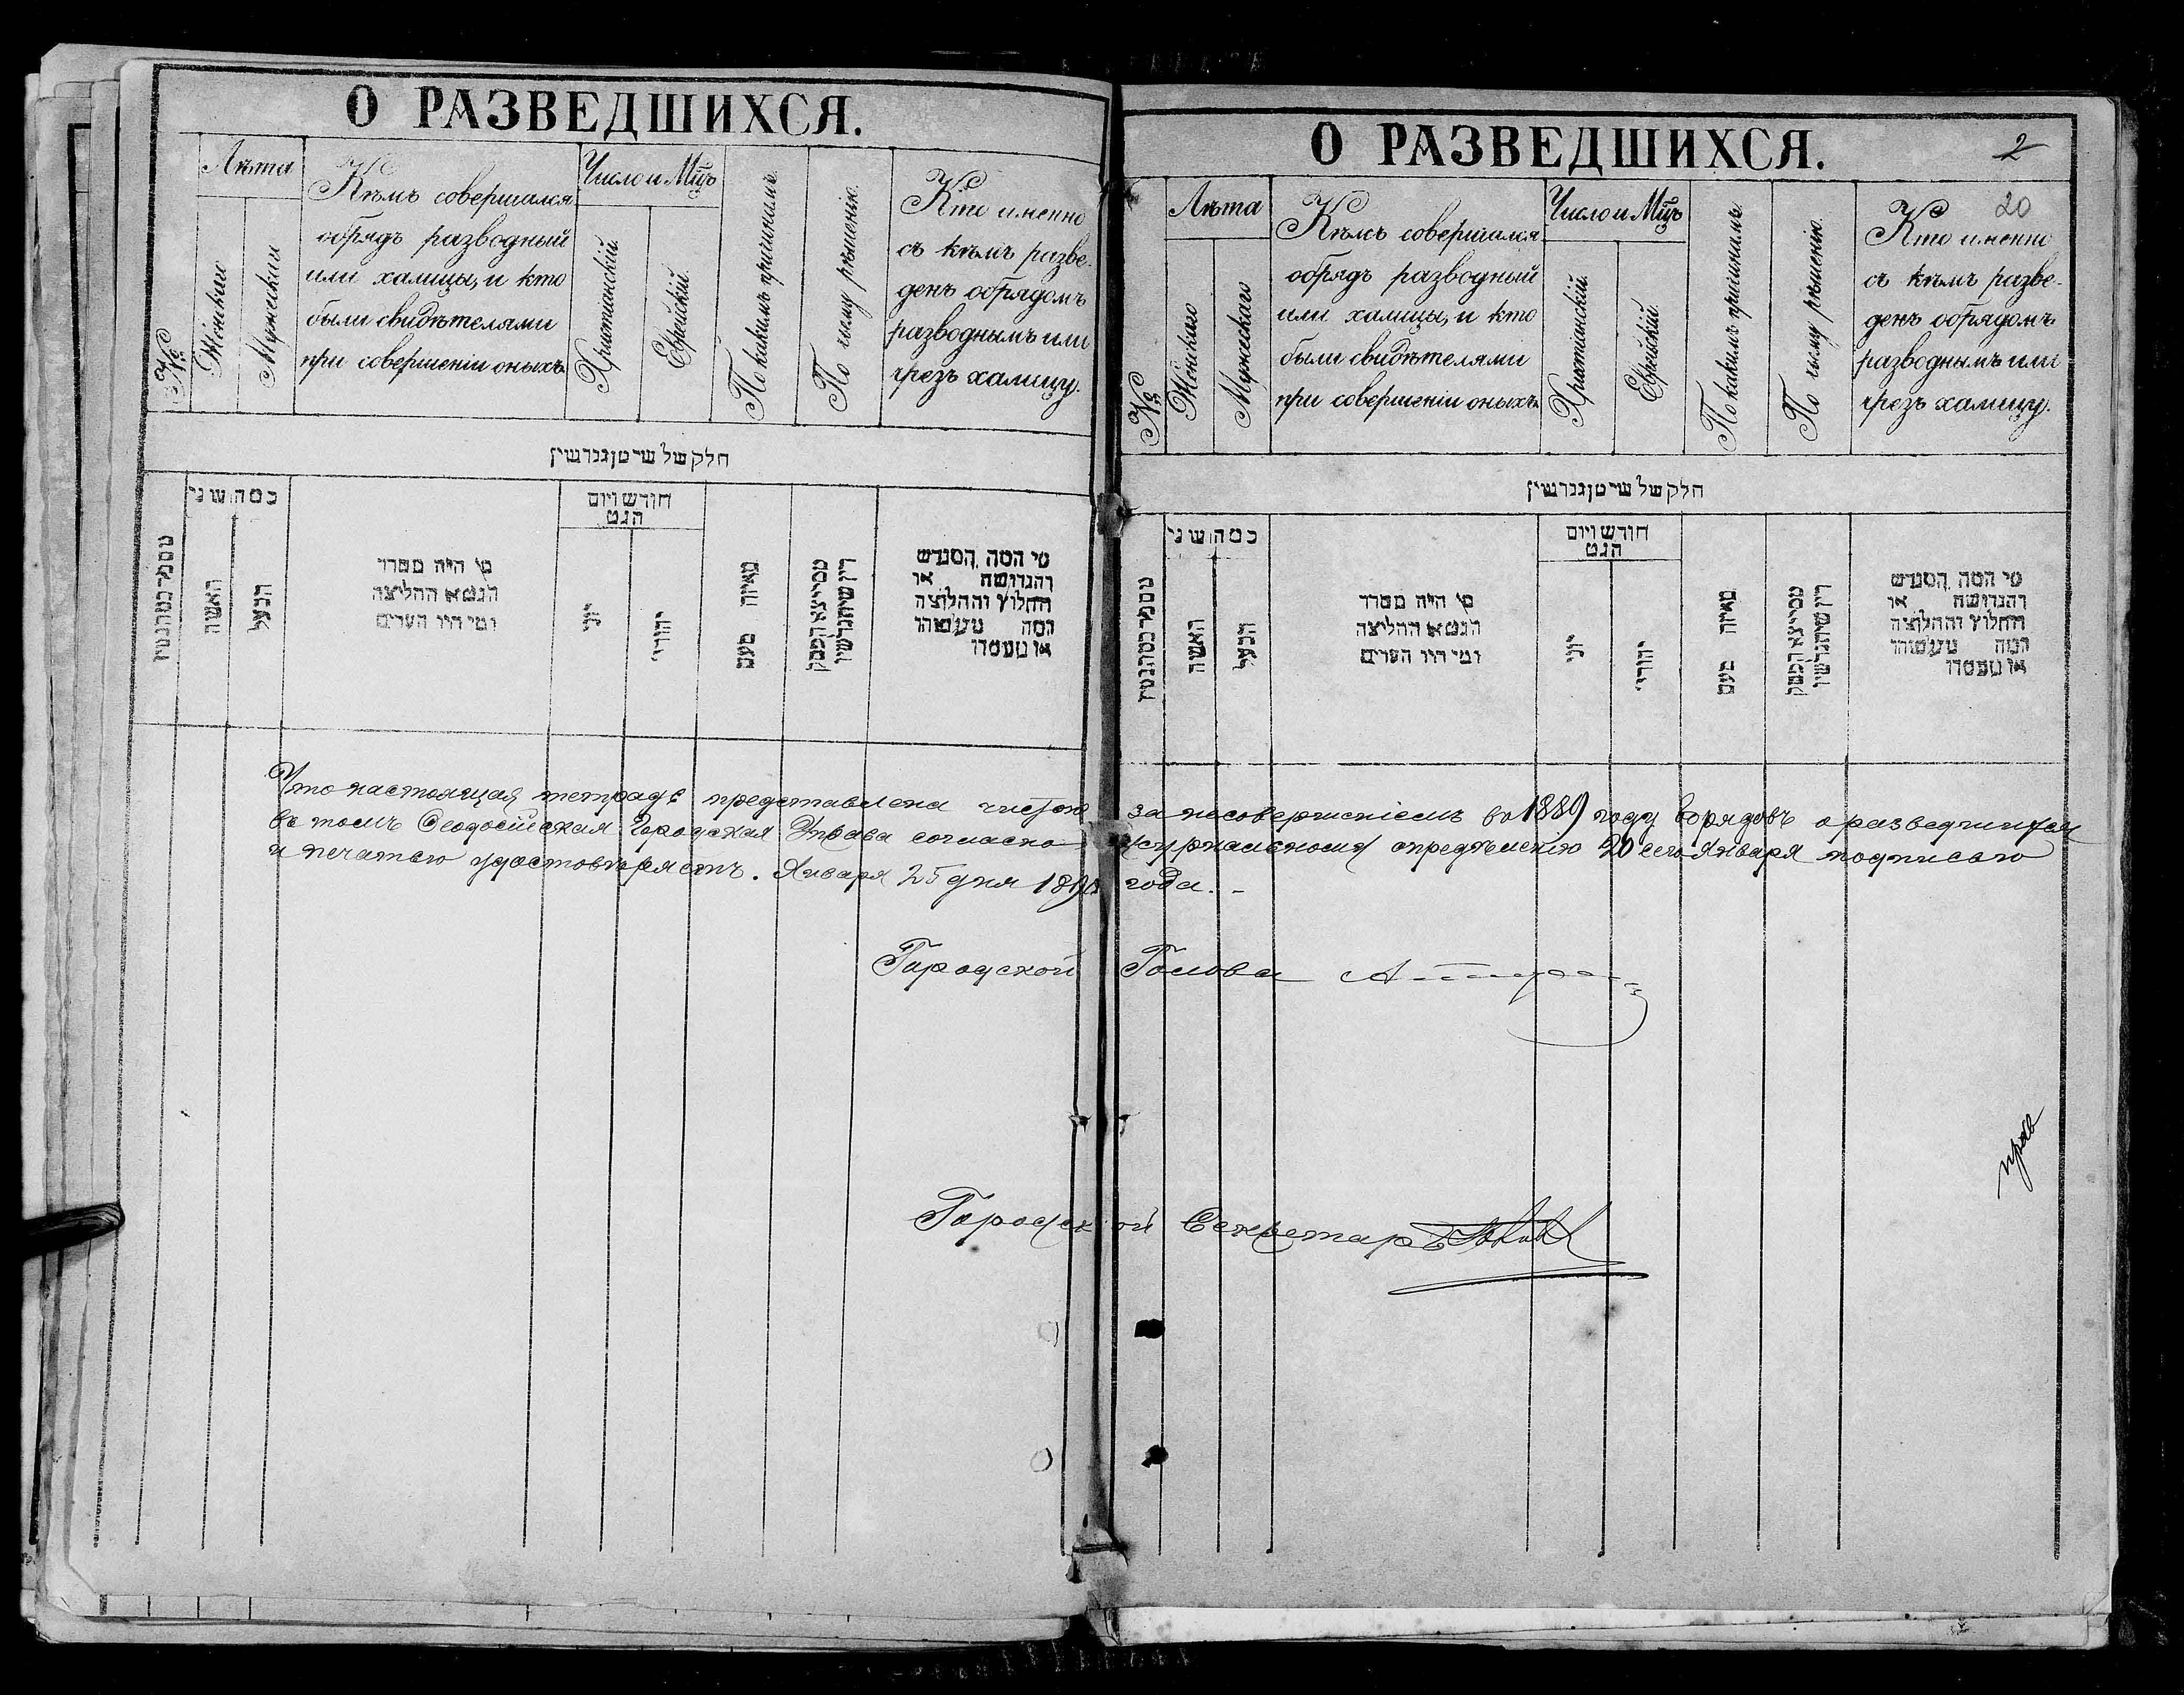 О РАЗВЕДШИХСЯ.
№
Лѣта
Женскаго
Мужескаго
Кѣмъ совершался
обрядъ разводный
или халицы, и кто
были свидѣтелями
при совершеніи оныхъ.
Число и Мцъ
Христіанскій.
Еврейскій.
По какимъ причинамъ.
По чьему рѣшенію.
Кто именно
съ кѣмъ разве-
денъ обрядомъ
разводнымъ или
чрезъ халицу.
חלק של שיטן גנרשין
כמה שני
האשה
הבעל
מי היה מסדר
הגט או החליצה
ומי היו העדים
חודש ויום
הגט
יוני
יהודי
מאיזה טעם
מי המה המגרש
והגרושה או
החלוץ והחלוצה
ומה מעשיהו
או מעמדו
О РАЗВЕДШИХСЯ.
2
20
№
Лѣта
Женскаго
Мужескаго
Кѣмъ совершался
обрядъ разводный
или халицы, и кто
были свидѣтелями
при совершеніи оныхъ.
Число и Мцъ
Христіанскій.
Еврейскій.
По какимъ причинамъ.
По чьему рѣшенію.
Кто именно
съ кѣмъ разве-
денъ обрядомъ
разводнымъ или
чрезъ халицу.
חלק של שיטן גנרשין
כמה שני
האשה
הבעל
מי היה מסדר
הגט או החליצה
ומי היו העדים
חודש ויום
הגט
יוני
יהודי
מאיזה טעם
מי המה המגרש
והגרושה או
החלוץ והחלוצה
ומה מעשיהו
או מעמדו
Что настоящая тетрадь представлена чистою за несовершеніемъ въ 1889 году обрядовъ о разведшихся
въ томъ Ѳеодосійская Городская Управа согласно журнальному опредѣленію 20 сего Января подписью
и печатью удостовѣряетъ. Января 25 дня 1890 года.-
Городской Голова
Городской Секретарь